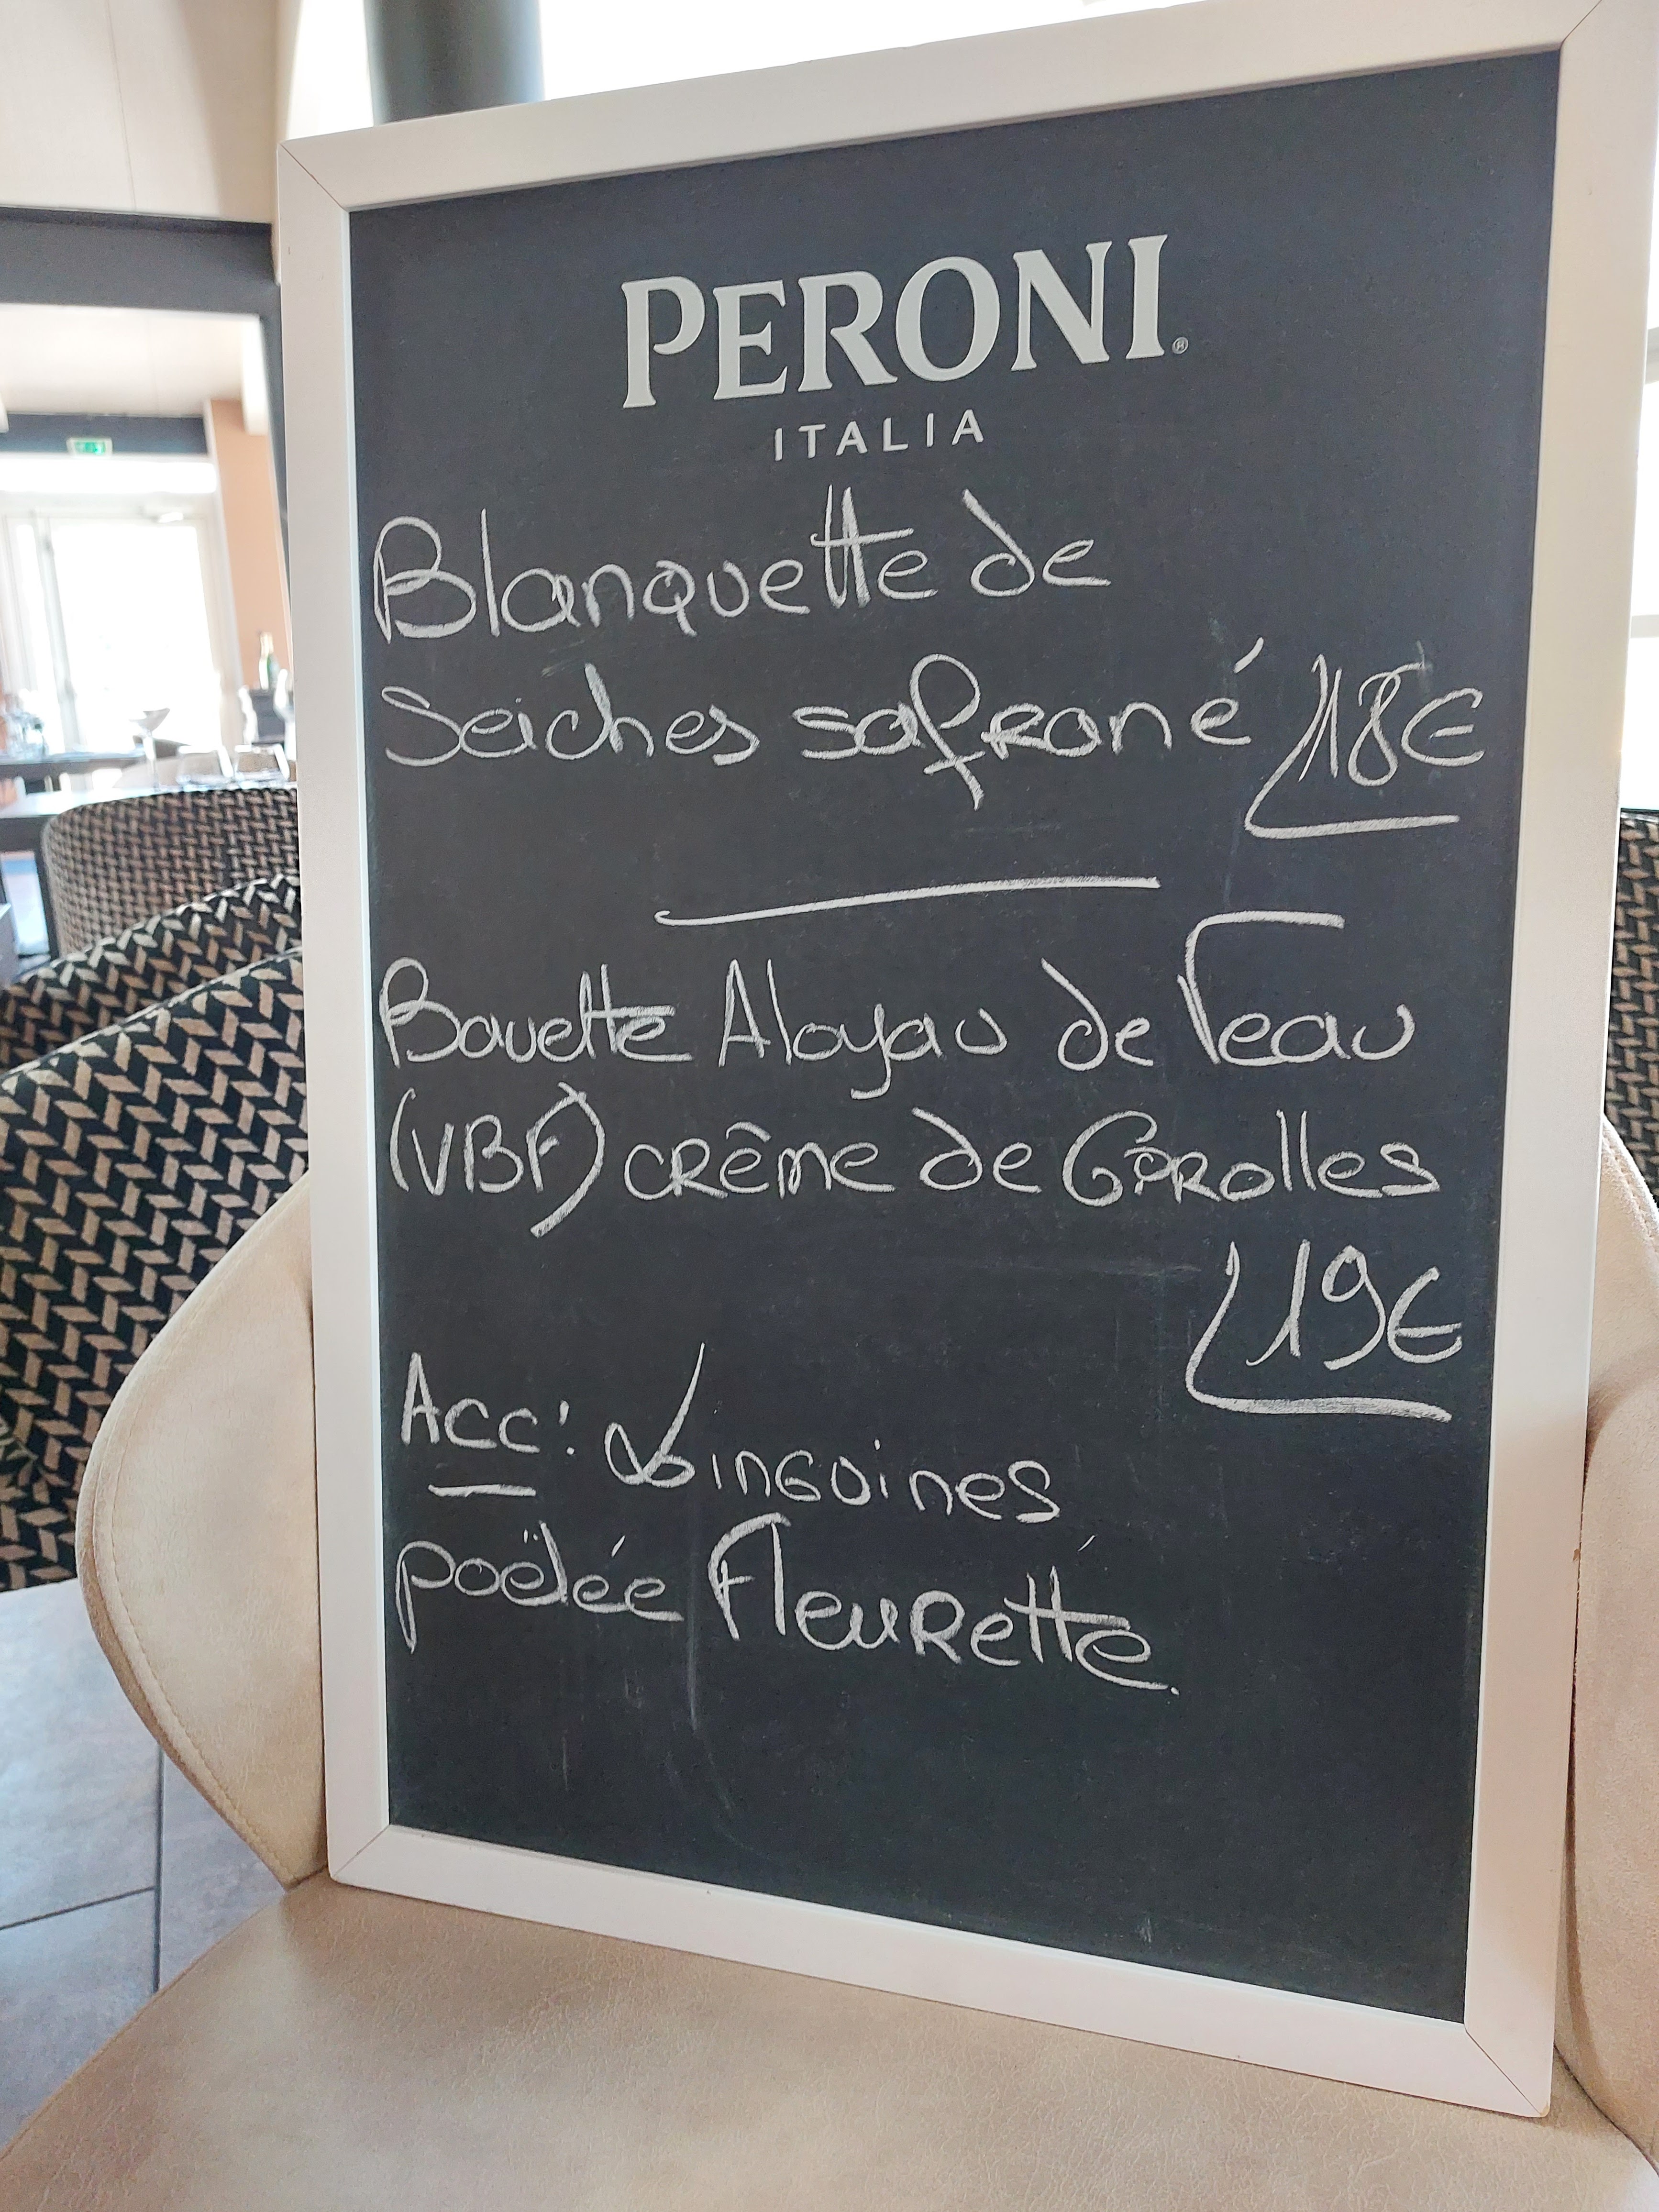 PERONI®
ITALIA
Blanquette de
Seiches safrané 18€
Bavette Aloyau de Veau
(VBF) crême de Girolles
19€
Acc: Linguines
poëlée Fleurette.